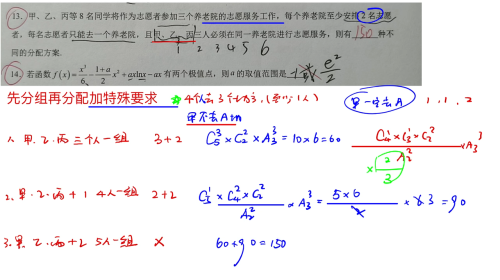 13. 甲、乙、丙等8名同学将作为志愿者参加三个养老院的志愿服务工作，每个养老院至少安排2名志愿
者，每名志愿者只能去一个养老院，且甲、乙、丙三人必须在同一养老院进行志愿服务，则有150种不
同的分配方案.
1 2 3 4 5 6
14. 若函数f(x)=x³/3-(1+a)/2 x²+axlnx-ax有两个极值点，则a的取值范围是 e²/2
先分组再分配加特殊要求
4个去3个地方，(至少1人)
甲不去A
甲一定去A
1, 1, 2
1. 甲.乙.丙三个人一组 3+2 C₅³×C₂²×A₃³=10×6=60
C₄¹×C₃¹×C₂²/A₂² ×A₃³
×2/3
2. 甲.乙.丙+1 4人一组 2+2 C₅¹×C₄²×C₂²/A₂² ×A₃³=5×6/2×63=90
3. 甲.乙.丙+2 5人一组 ×
60+90=150